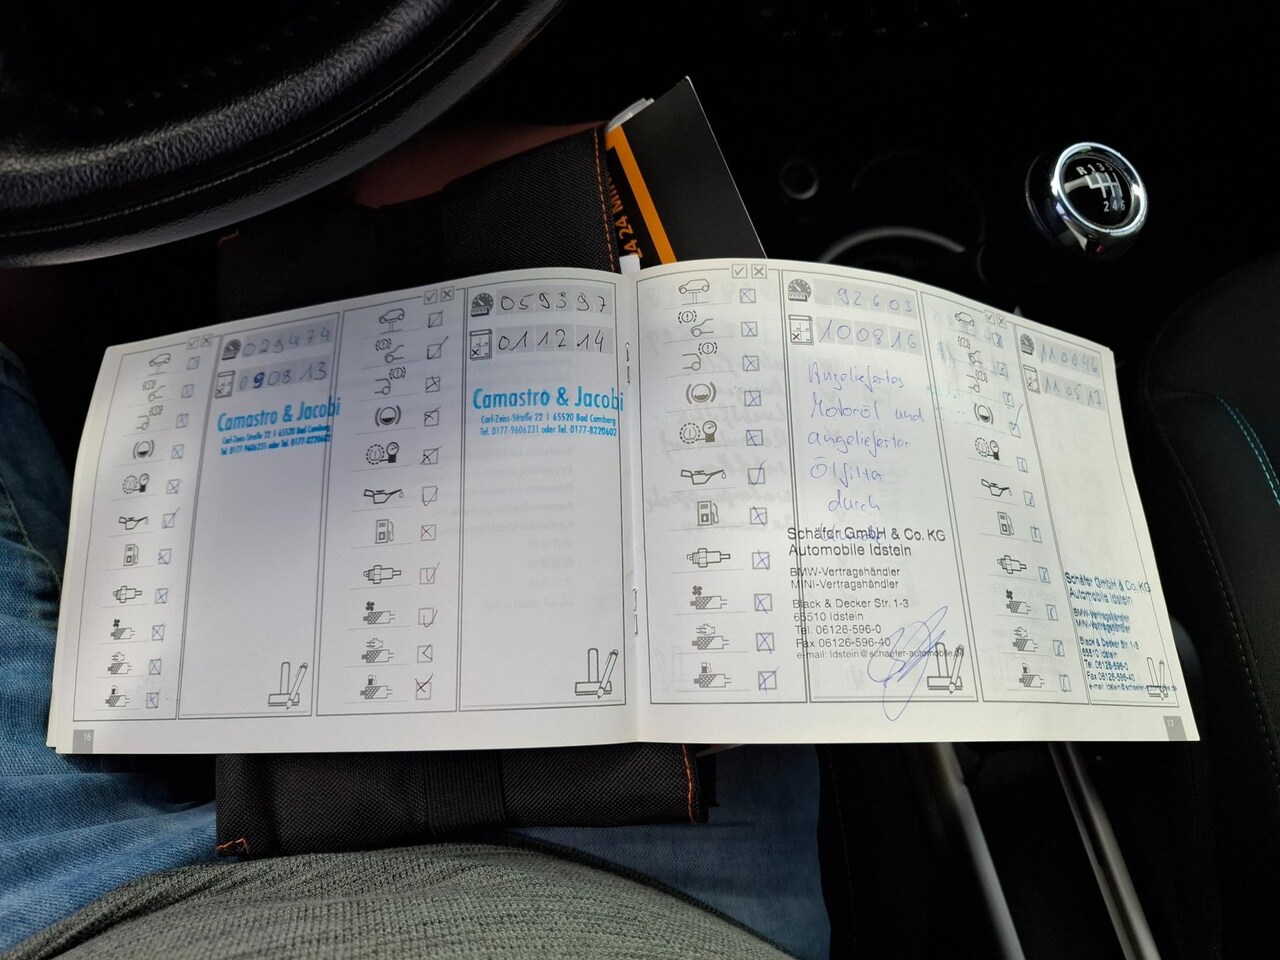 029474
090813
Camastro & Jacobi
Carl-Zeiss-Straße 22 | 65520 Bad Camberg
Tel. 0177-9606231 oder Tel. 0177-8220602
16
059397
011214
Camastro & Jacobi
Carl-Zeiss-Straße 22 | 65520 Bad Camberg
Tel. 0177-9606231 oder Tel. 0177-8220602
92603
100816
Angeliefertes
Motoröl und
angelieferter
Ölfilter
durch
Schäfer GmbH & Co. KG
Automobile Idstein
BMW-Vertragshändler
MINI-Vertragshändler
Black & Decker Str. 1-3
65510 Idstein
Tel. 06126-596-0
Fax 06126-596-40
e-mail: Idstein@schaefer-automobile.de
110046
110517
Schäfer GmbH & Co. KG
Automobile Idstein
BMW-Vertragshändler
MINI-Vertragshändler
Black & Decker Str. 1-3
65510 Idstein
Tel. 06126-596-0
Fax 06126-596-40
17
R 1 3 5
2 4 6